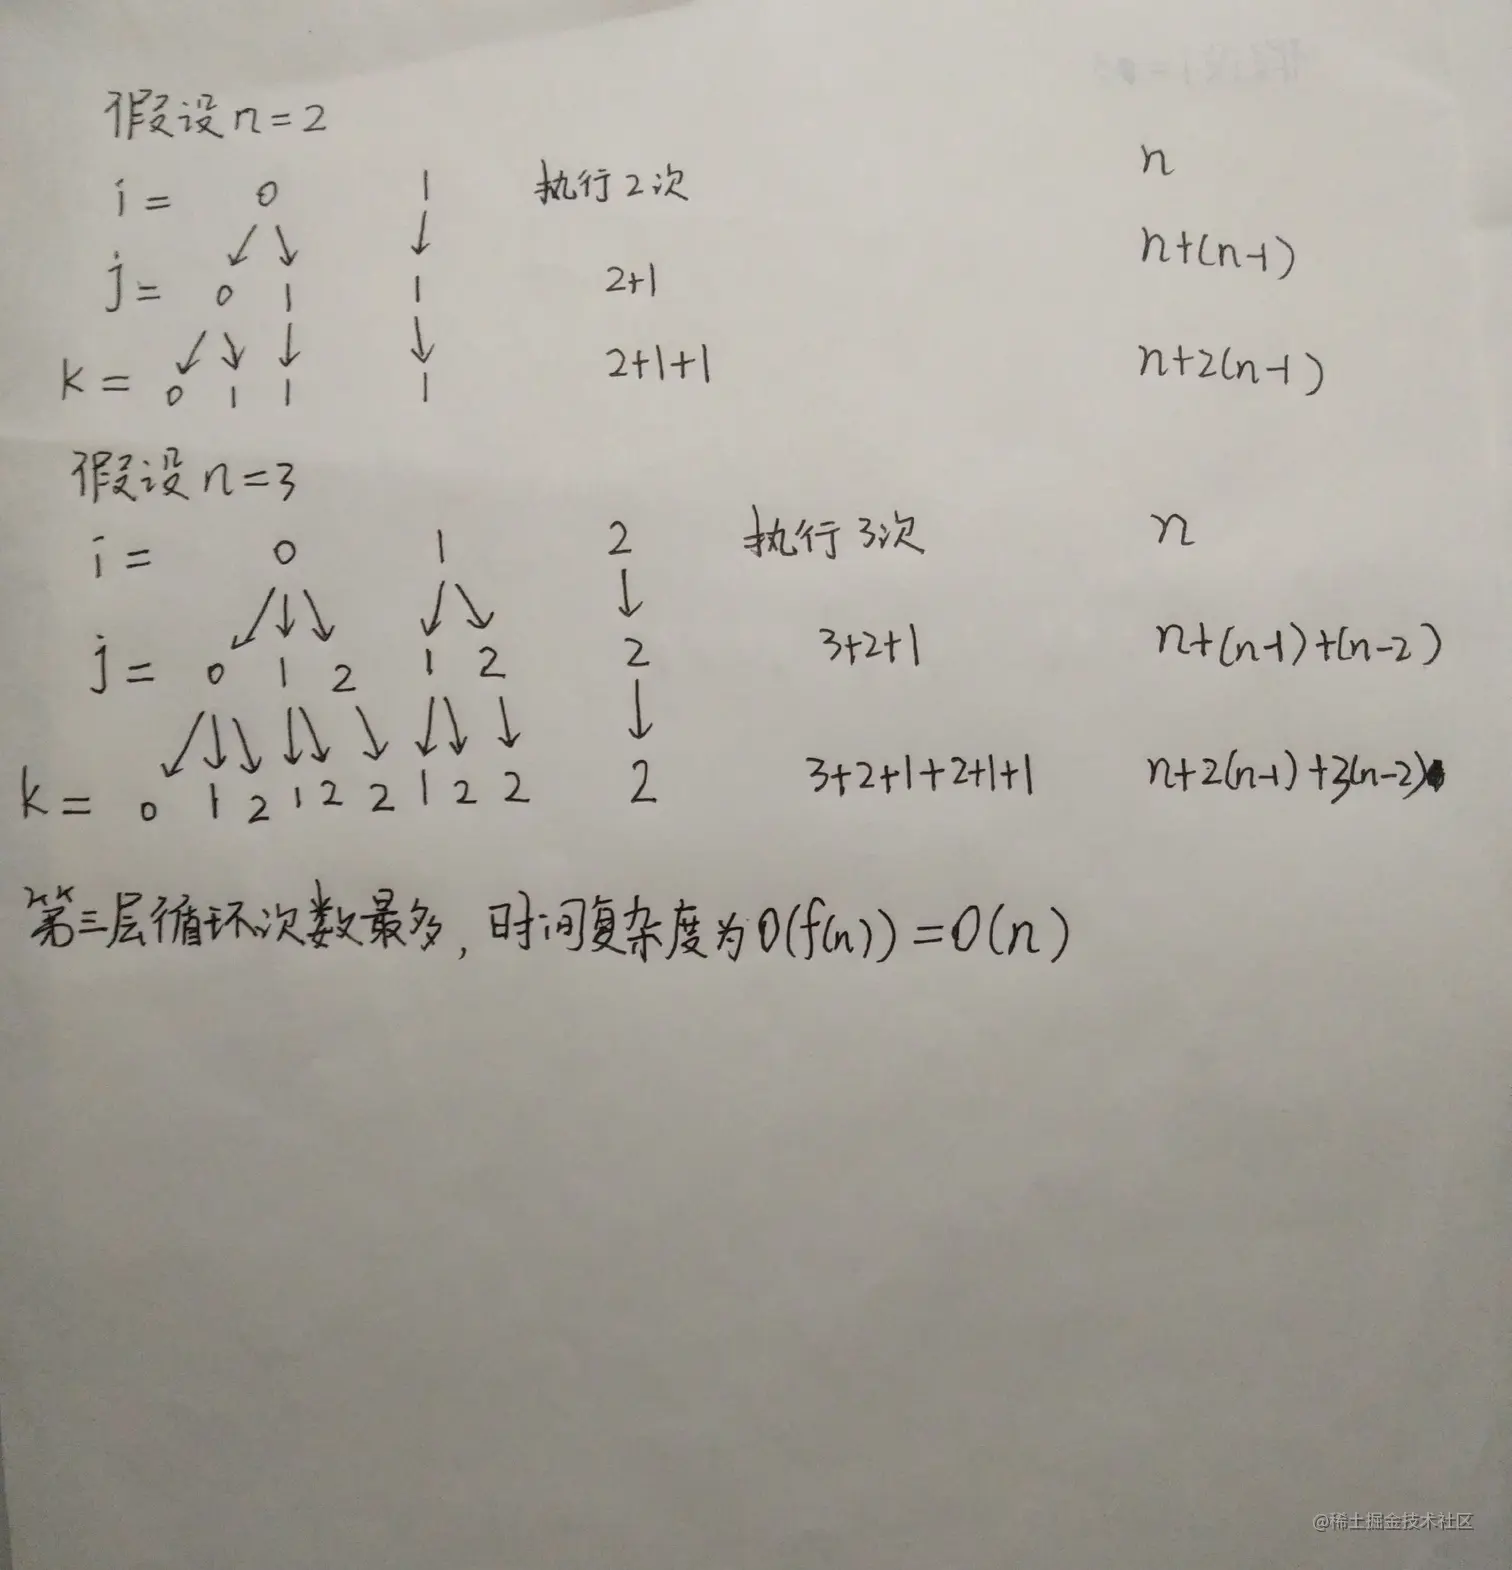 假设n=2
i= 0 1 执行2次 n
j= 0 1 1 2+1 n+(n-1)
k= 0 1 1 1 2+1+1 n+2(n-1)
假设n=3
i= 0 1 2 执行3次 n
j= 0 1 2 1 2 2 3+2+1 n+(n-1)+(n-2)
k= 0 1 2 1 2 2 1 2 2 2 3+2+1+2+1+1 n+2(n-1)+3(n-2)
第三层循环次数最多,时间复杂度为O(f(n))=O(n)
@稀土掘金技术社区